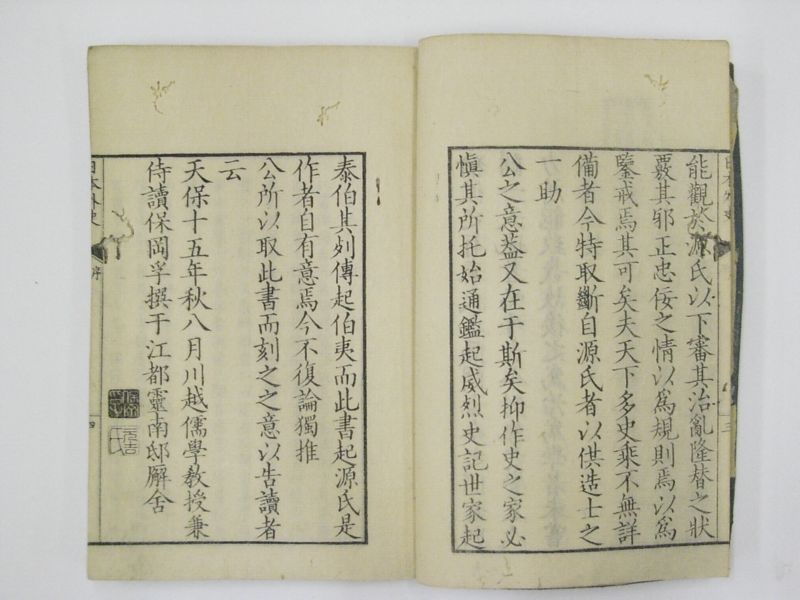 能觀於源氏以下審其治亂隆替之狀
覈其邪正忠佞之情以爲規則焉以爲
鑒戒焉其可矣夫天下多史乘不無詳
備者今特取斷自源氏者以供造士之
一助
公之意葢又在于斯矣抑作史之家必
愼其所托始通鑑起威烈史記世家起
泰伯其列傳起伯夷而此書起源氏是
作者自有意焉今不復論獨推
公所以取此書而刻之之意以告讀者
云
天保十五年秋八月川越儒學敎授兼
侍讀保岡孚撰于江都靈南邸廨舍
日本外史
序
四
三